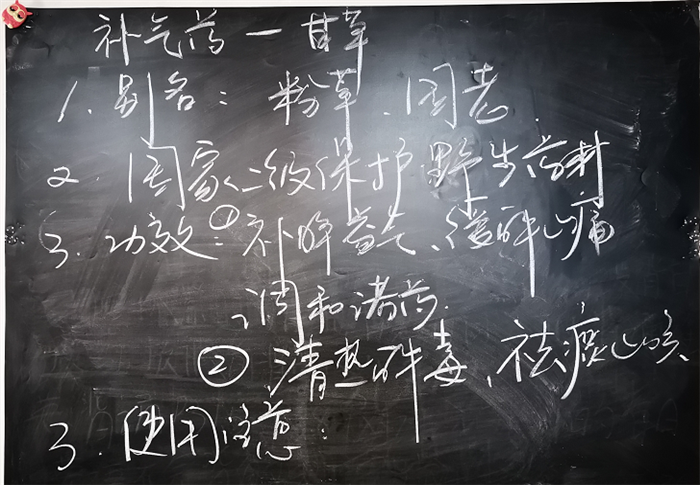 补气药一甘草
1. 别名：粉草、国老.
2. 国家二级保护野生药材
3. 功效：①补脾益气、缓解止痛
调和诸药.
② 清热解毒、祛痰止咳
3. 使用注意：